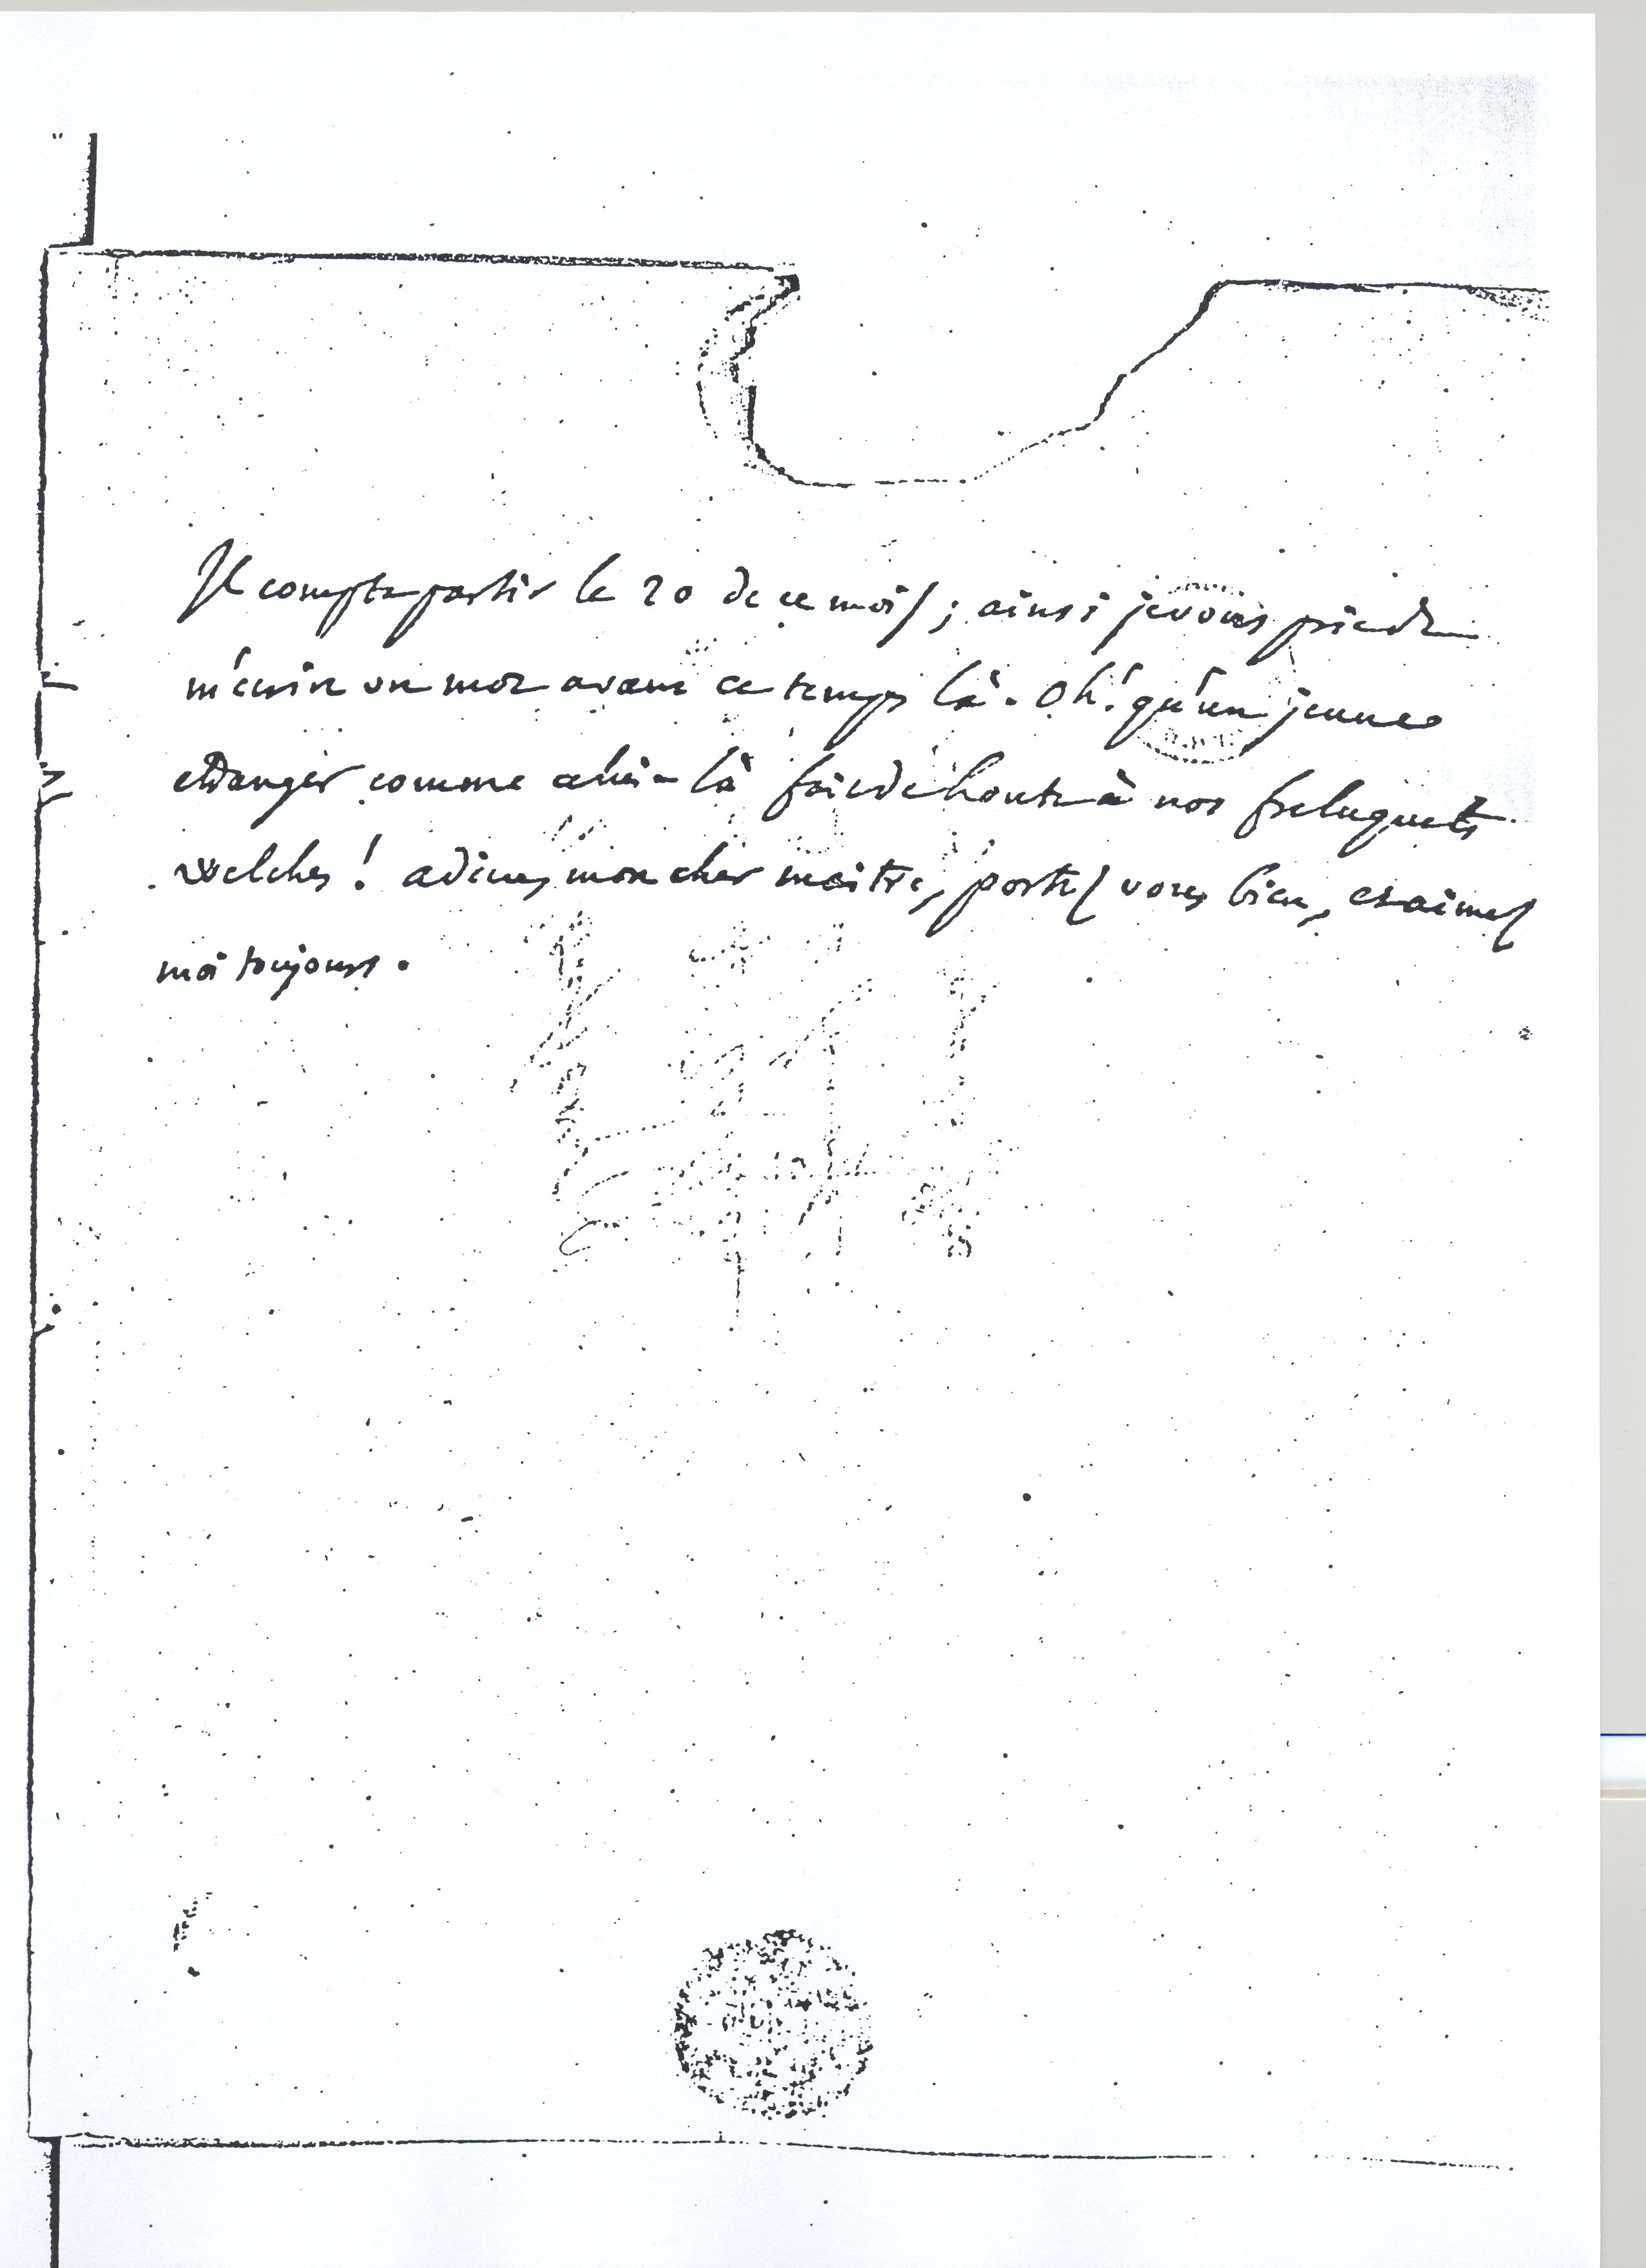 Il compte partir le 20 de ce mois ; ainsi je vous prie de
m'ecrire un mot avant ce temps là. Oh! qu'un jeune
etranger comme celui-là fait de honte à nos freluquets
welches! adieu, mon cher maitre, portez vous bien, et aimez
moi toujours.